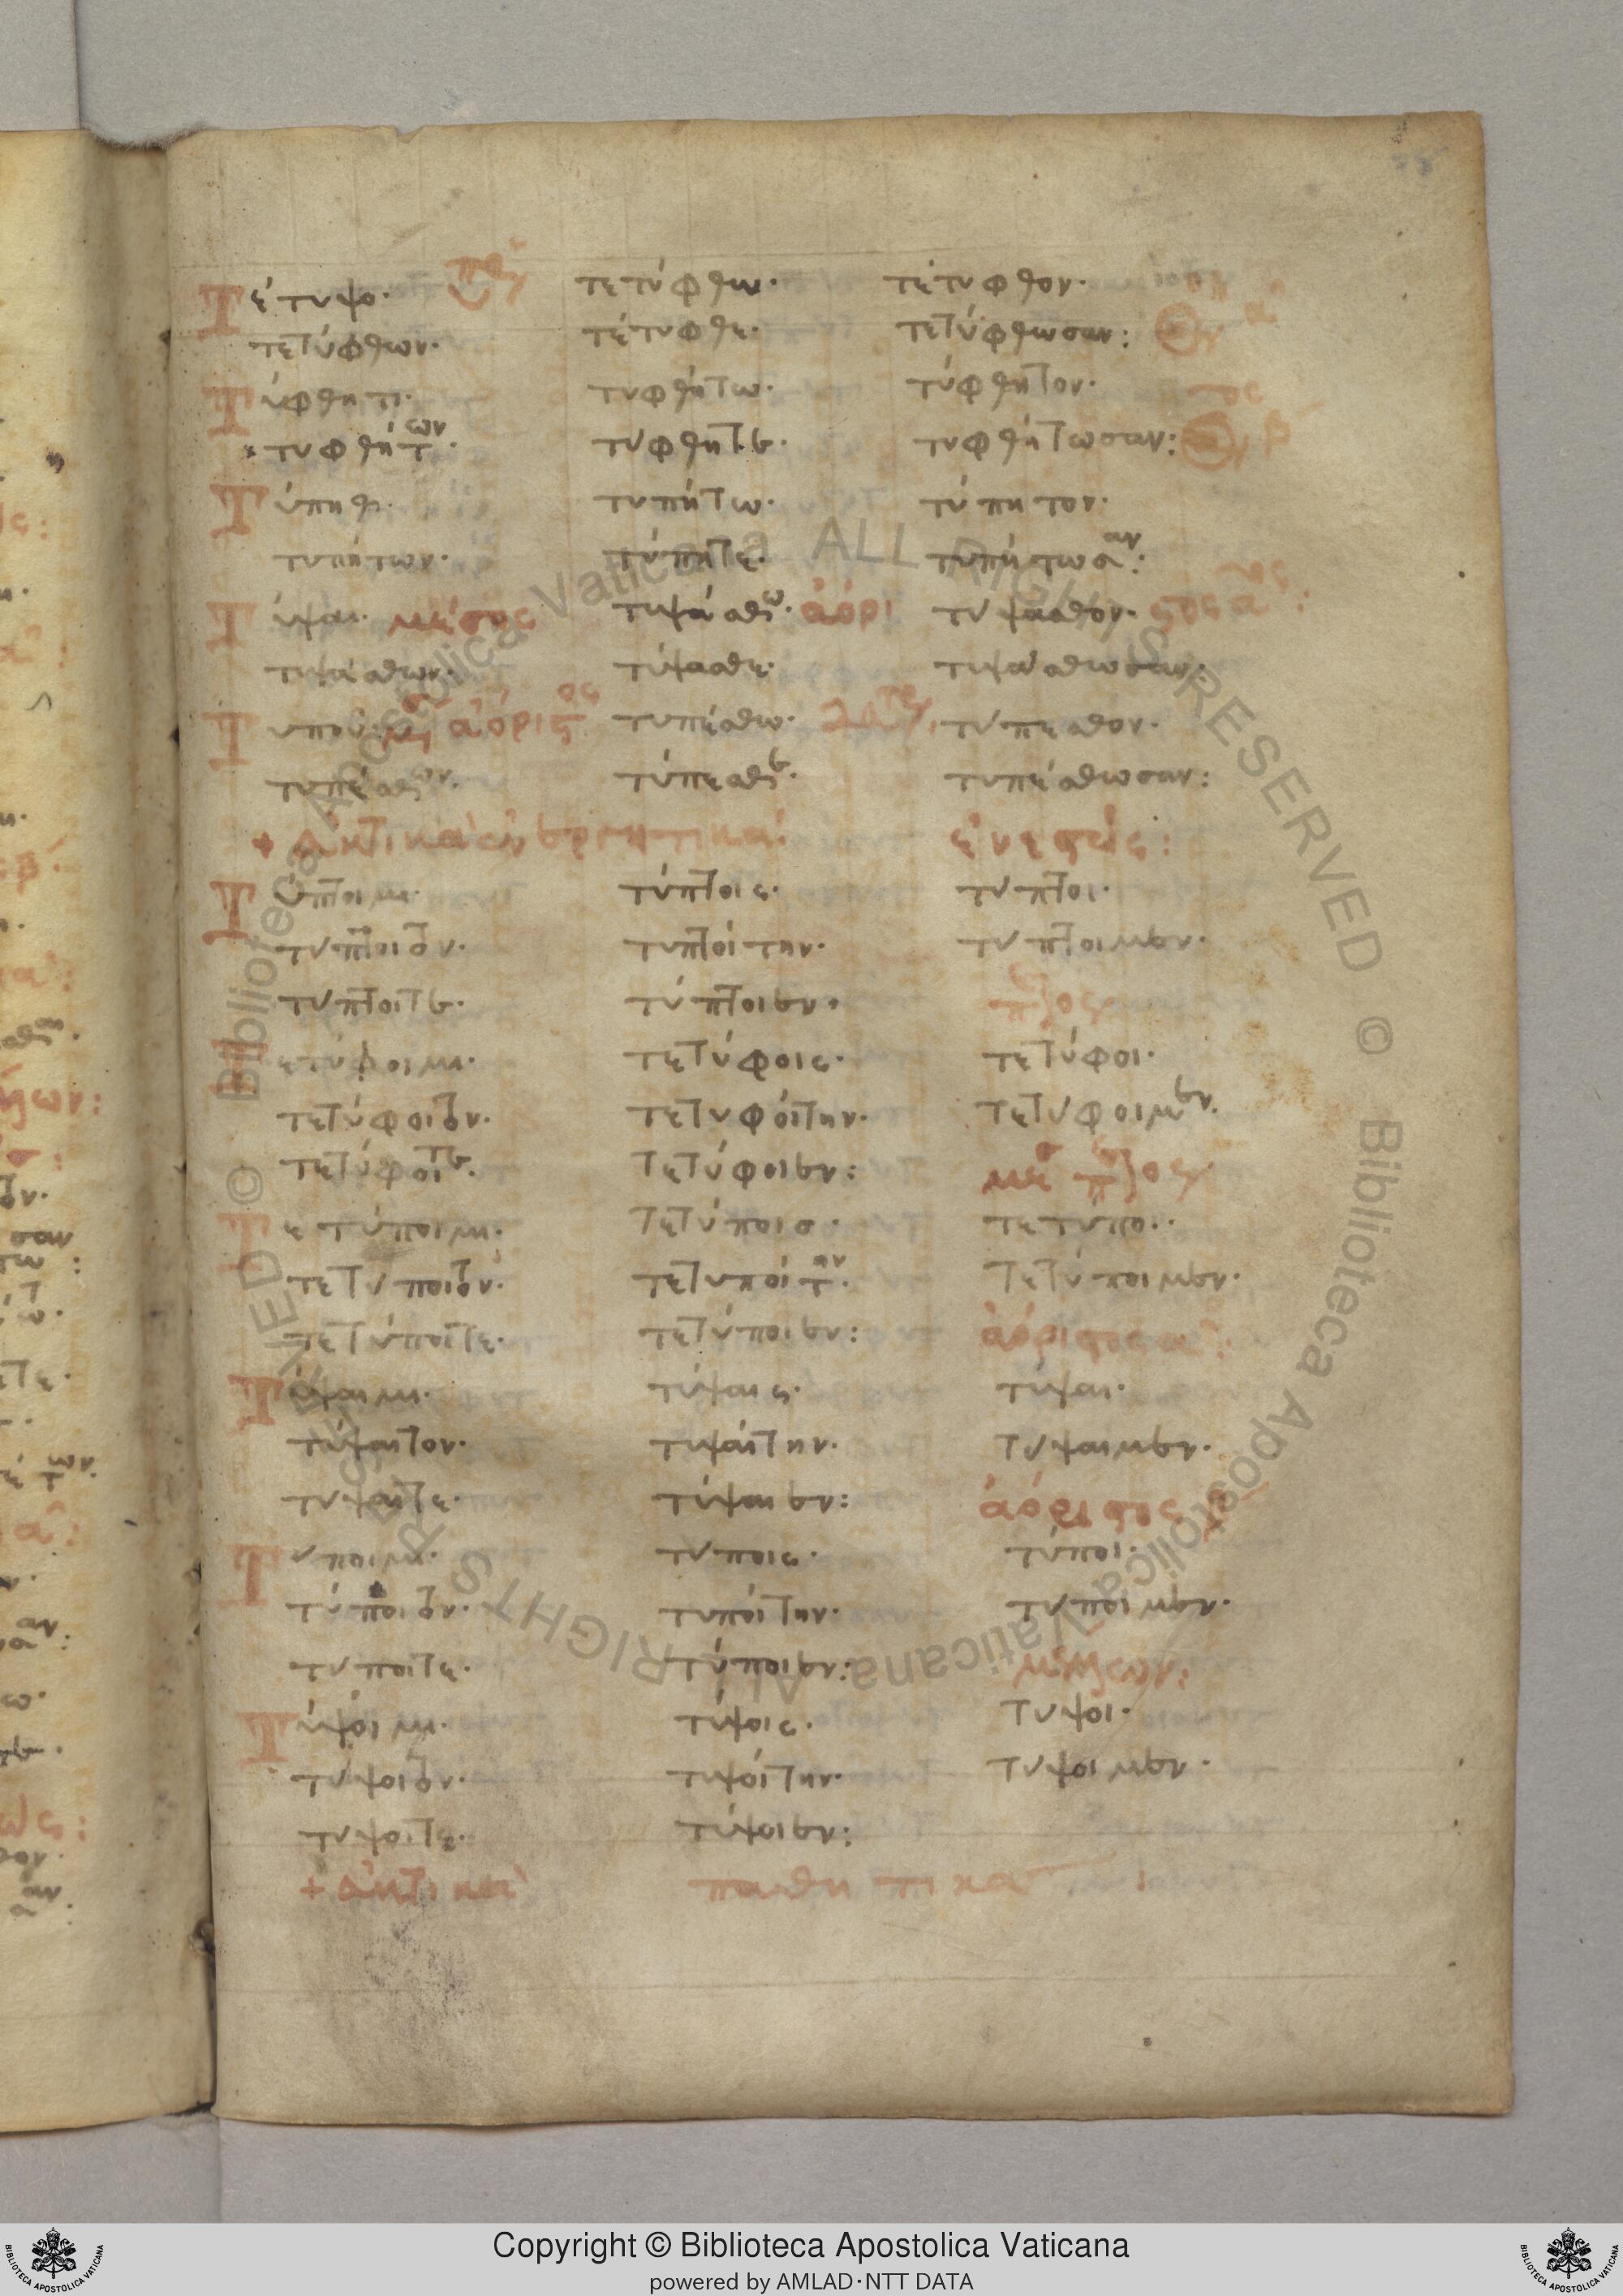 Τέτυψο· τετύφθω· τέτυφθον·
τετύφθων· τέτυφθε· τετύφθωσαν:
Τύφθητι· τυφθήτω· τύφθητον·
τυφθήτων· τύφθητε· τυφθήτωσαν:
Τύπηθι· τυπήτω· τύπητον·
τυπήτων· τύπητε· τυπήτωσαν:
Τύψαι· μέσος τυψάσθω· ἀόρι τύψασθον· στος α
τυψάσθων· τύψασθε· τυψάσθωσαν:
Τυποῦ· ἀόριστος τυπέσθω· τύπεσθον·
τυπέσθων· τύπεσθε· τυπέσθωσαν:
+ ἐνεργητικά ἐνεστώς:
Τύπτοιμι· τύπτοις· τύπτοι·
τύπτοιτον· τυπτοίτην· τύπτοιμεν·
τύπτοιτε· τύπτοιεν·
Τετύφοιμι· τετύφοις· τετύφοι·
τετύφοιτον· τετυφοίτην· τετύφοιμεν·
τετύφοιτε· τετύφοιεν:
Τετύποιμι· τετύποισ· τετύποι·
τετύποιτον· τετυποίτην· τετύποιμεν·
τετύποιτε· τετύποιεν: ἀόριστος α:
Τύψαιμι· τύψαις· τύψαι·
τύψαιτον· τυψαίτην· τύψαιμεν·
τύψαιτε· τύψαιεν: ἀόριστος β
Τύποιμι· τύποις· τύποι·
τύποιτον· τυποίτην· τύποιμεν·
τύποιτε· τύποιεν: μέλλων:
Τύψοιμι· τύψοις· τύψοι·
τύψοιτον· τυψοίτην· τύψοιμεν·
τύψοιτε· τύψοιεν:
+ εὐκτικὰ παθητικά
Copyright © Biblioteca Apostolica Vaticana
powered by AMLAD·NTT DATA